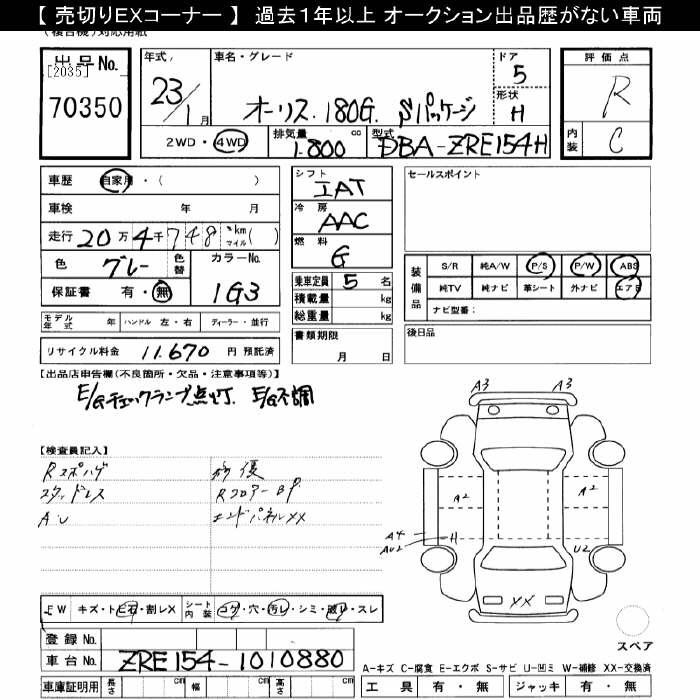 【 売切りEXコーナー 】 過去1年以上 オークション出品歴がない車両
(複合機)対応用紙
出品No.
[2035]
70350
年式
23/1月
車名・グレード
オーリス 180G Sパッケージ
ドア
5
形状
H
2WD・4WD
排気量
1.800 cc
型式
DBA-ZRE154H
評価点
R
内装
C
車歴 自家用・( )
車検 年 月
走行 20万4千748 km マイル ( )
色 グレー 色替
カラーNo.
1G3
保証書 有・無
モデル年式 年 ハンドル 左・右 ディーラー・並行
リサイクル料金 11.670 円 預託済
シフト
IAT
冷房
AAC
燃料
G
乗車定員 5 名
積載量 kg
総重量 kg
書類期限
月 日
セールスポイント
装備品
S/R 純A/W P/S P/W ABS
純TV 純ナビ 革シート 外ナビ エアB
ナビ型番:
後日品
【出品店申告欄(不良箇所・欠品・注意事項等)】
E/Gチェックランプ点灯 E/G不調
【検査員記入】
スタッドレス
RフロアーBP
エンドパネルXX
A3 A3
A2 A2
A4
AU2 H U2
XX
FW キズ・ト・石・割レX シート内装 コゲ・穴・汚レ・シミ・破レ・スレ
登録No.
車台No. ZRE154-1010880
車庫証明用 長さ cm 幅 cm 高さ cm
スペア
A-キズ C-腐食 E-エクボ S-サビ U-凹ミ W-補修 XX-交換済
工具 有・無 ジャッキ 有・無